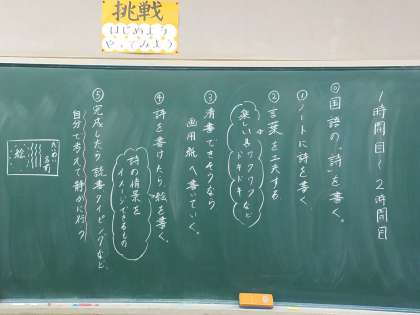 挑戦
はじめよう
やってみよう
1時間目〜2時間目
◎国語の「詩」を書く。
①ノートに詩を書く。
②言葉を工夫する。
楽しい→ワクワク
ドキドキなど
③清書できそうなら
画用紙へ書いていく。
④詩を書けたら絵を書く。
詩の情景を
イメージできるもの
⑤完成したら読書、タイピングなど、
自分で考えて静かに行う
絵